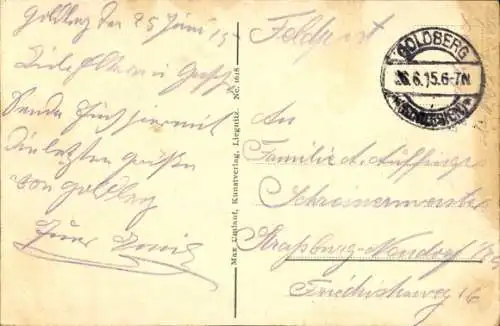 Goldberg den 25 Juni 15.
Liebe Eltern u. Gesch.
Sende Euch hiermit
die letzten Grüße
von Goldberg
Euer
Max Umlauf, Kunstverlag, Liegnitz. Nc. 1615
Feldpost
GOLDBERG
26.6.15.6-7N.
An
Familie A.
Schreinermeister
Straßburg-Neudorf
Friedrichsweg 16